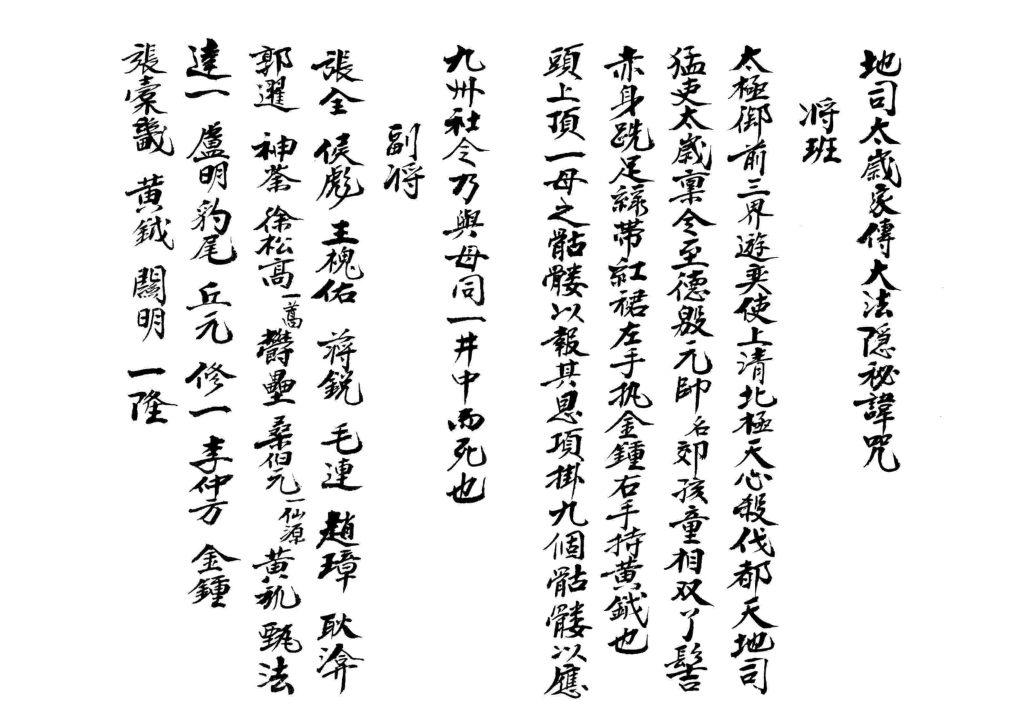 地司太歲家傳大法隐秘諱咒
将班
太極御前三界遊奕使上清北極天心殺伐都天地司
猛吏太歲稟令至德殷元帥名郊孩童相双丫髻
赤身跣足緑帯紅裙左手执金鍾右手持黄鉞也
頭上頂一母之骷髏以報其恩項掛九個骷髏以應
九州社令乃與母同一井中而死也
副将
張全 侯彪 王槐佑 蒋鋭 毛連 趙璋 耿渰
郭暹 神荼 徐松高一萬 欝壘 桑伯元一仙源 黄 甄法
達一 盧明 豹尾 丘元 修一 李仲方 金鍾
張 黄鉞 闗明 一隆